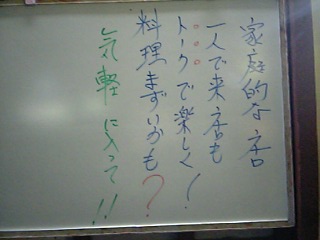 家庭的な店
一人で来店も
トークで楽しく!
料理まずいかも?
気軽に入って!!